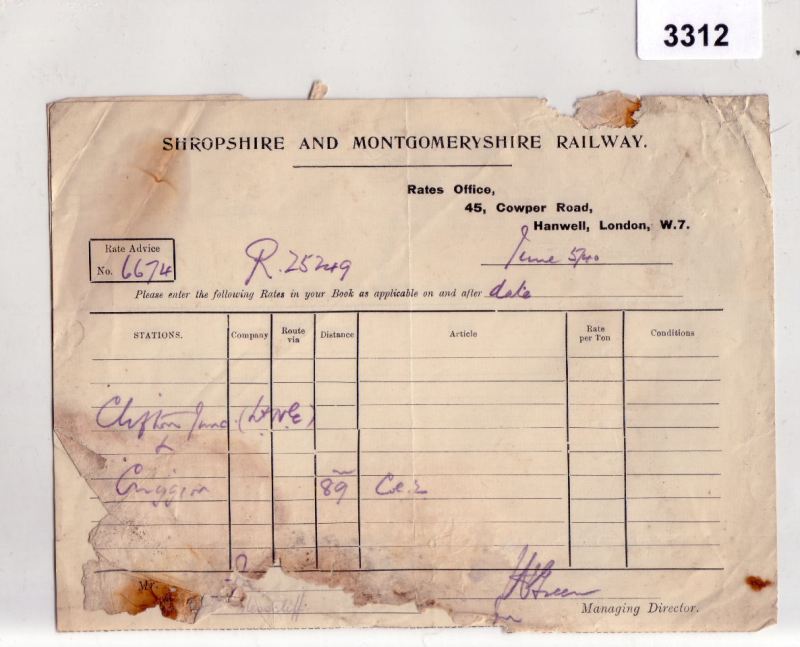 3312
SHROPSHIRE AND MONTGOMERYSHIRE RAILWAY.
Rates Office,
45, Cowper Road,
Hanwell, London, W.7.
Rate Advice
No. 6674
R. 25249
June 5/40
Please enter the following Rates in your Book as applicable on and after date
STATIONS. Company Route via Distance Article Rate per Ton Conditions
Clifton Junc. (
Criggion 89
Mr.
Managing Director.